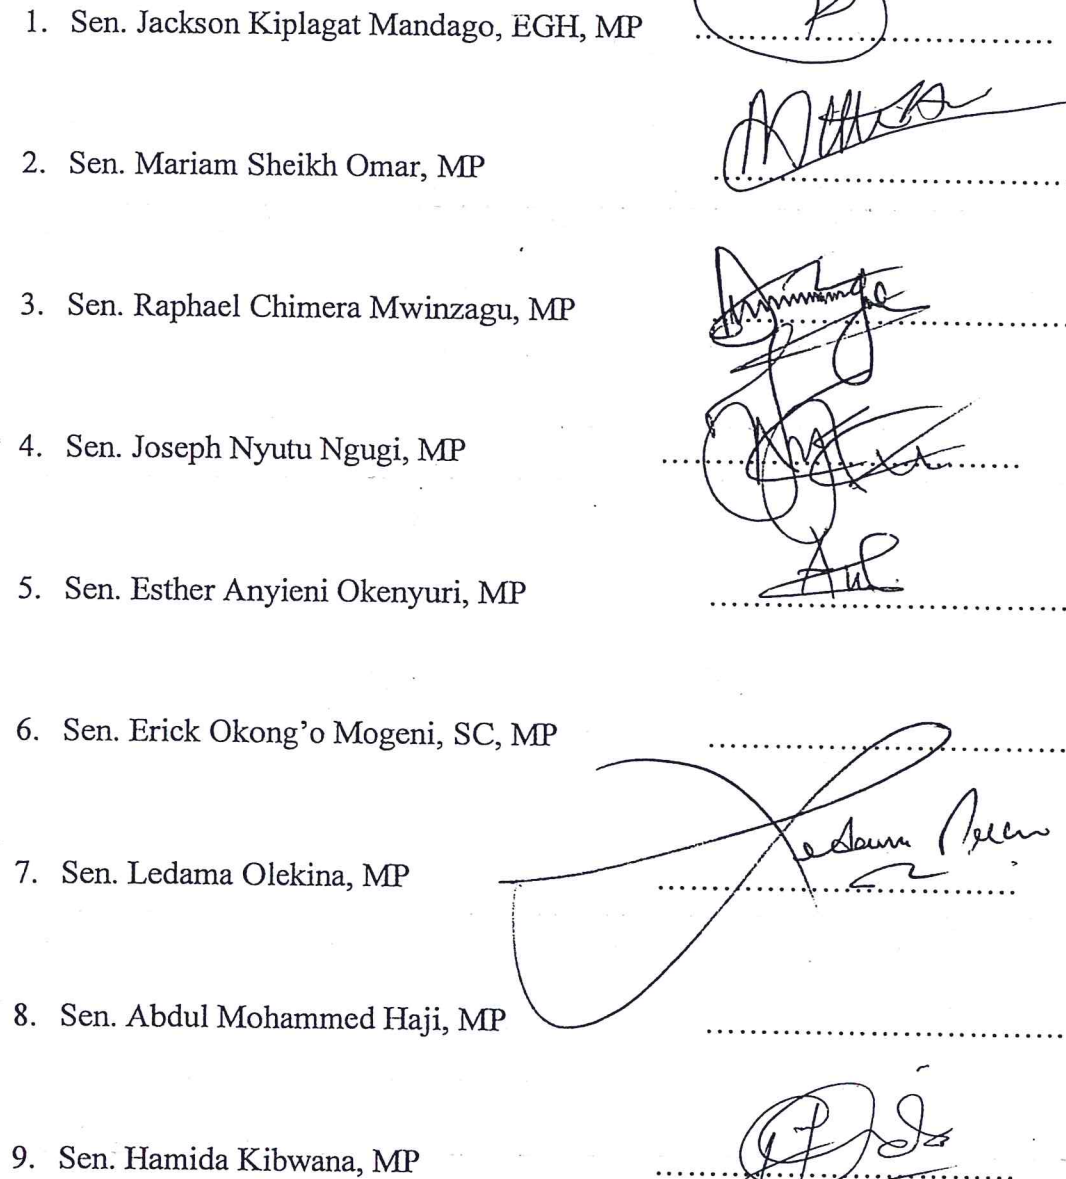 1. Sen. Jackson Kiplagat Mandago, EGH, MP
2. Sen. Mariam Sheikh Omar, MP
3. Sen. Raphael Chimera Mwinzagu, MP
4. Sen. Joseph Nyutu Ngugi, MP
5. Sen. Esther Anyieni Okenyuri, MP
6. Sen. Erick Okong’o Mogeni, SC, MP
7. Sen. Ledama Olekina, MP
8. Sen. Abdul Mohammed Haji, MP
9. Sen. Hamida Kibwana, MP